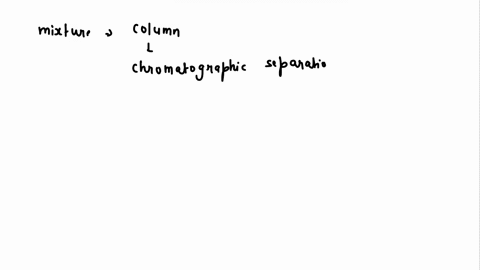 mixture → column
↳
chromatographic separatio